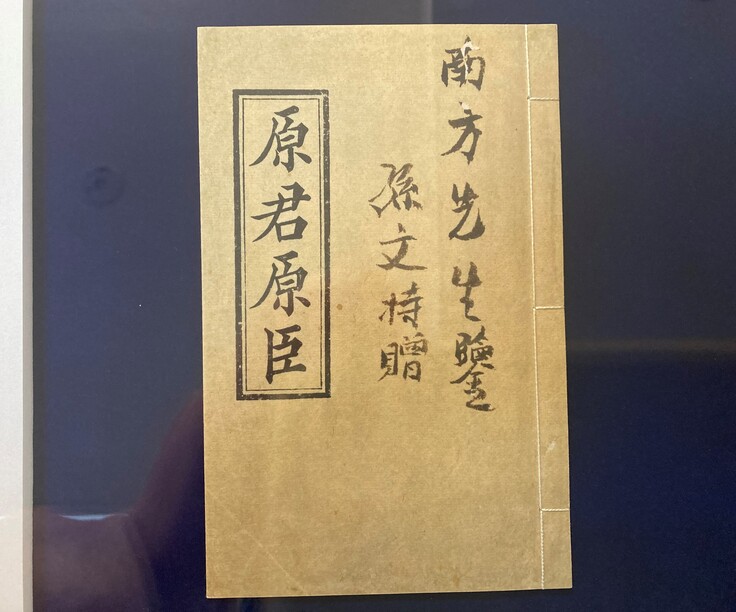 南方先生鑒
孫文持贈
原君原臣